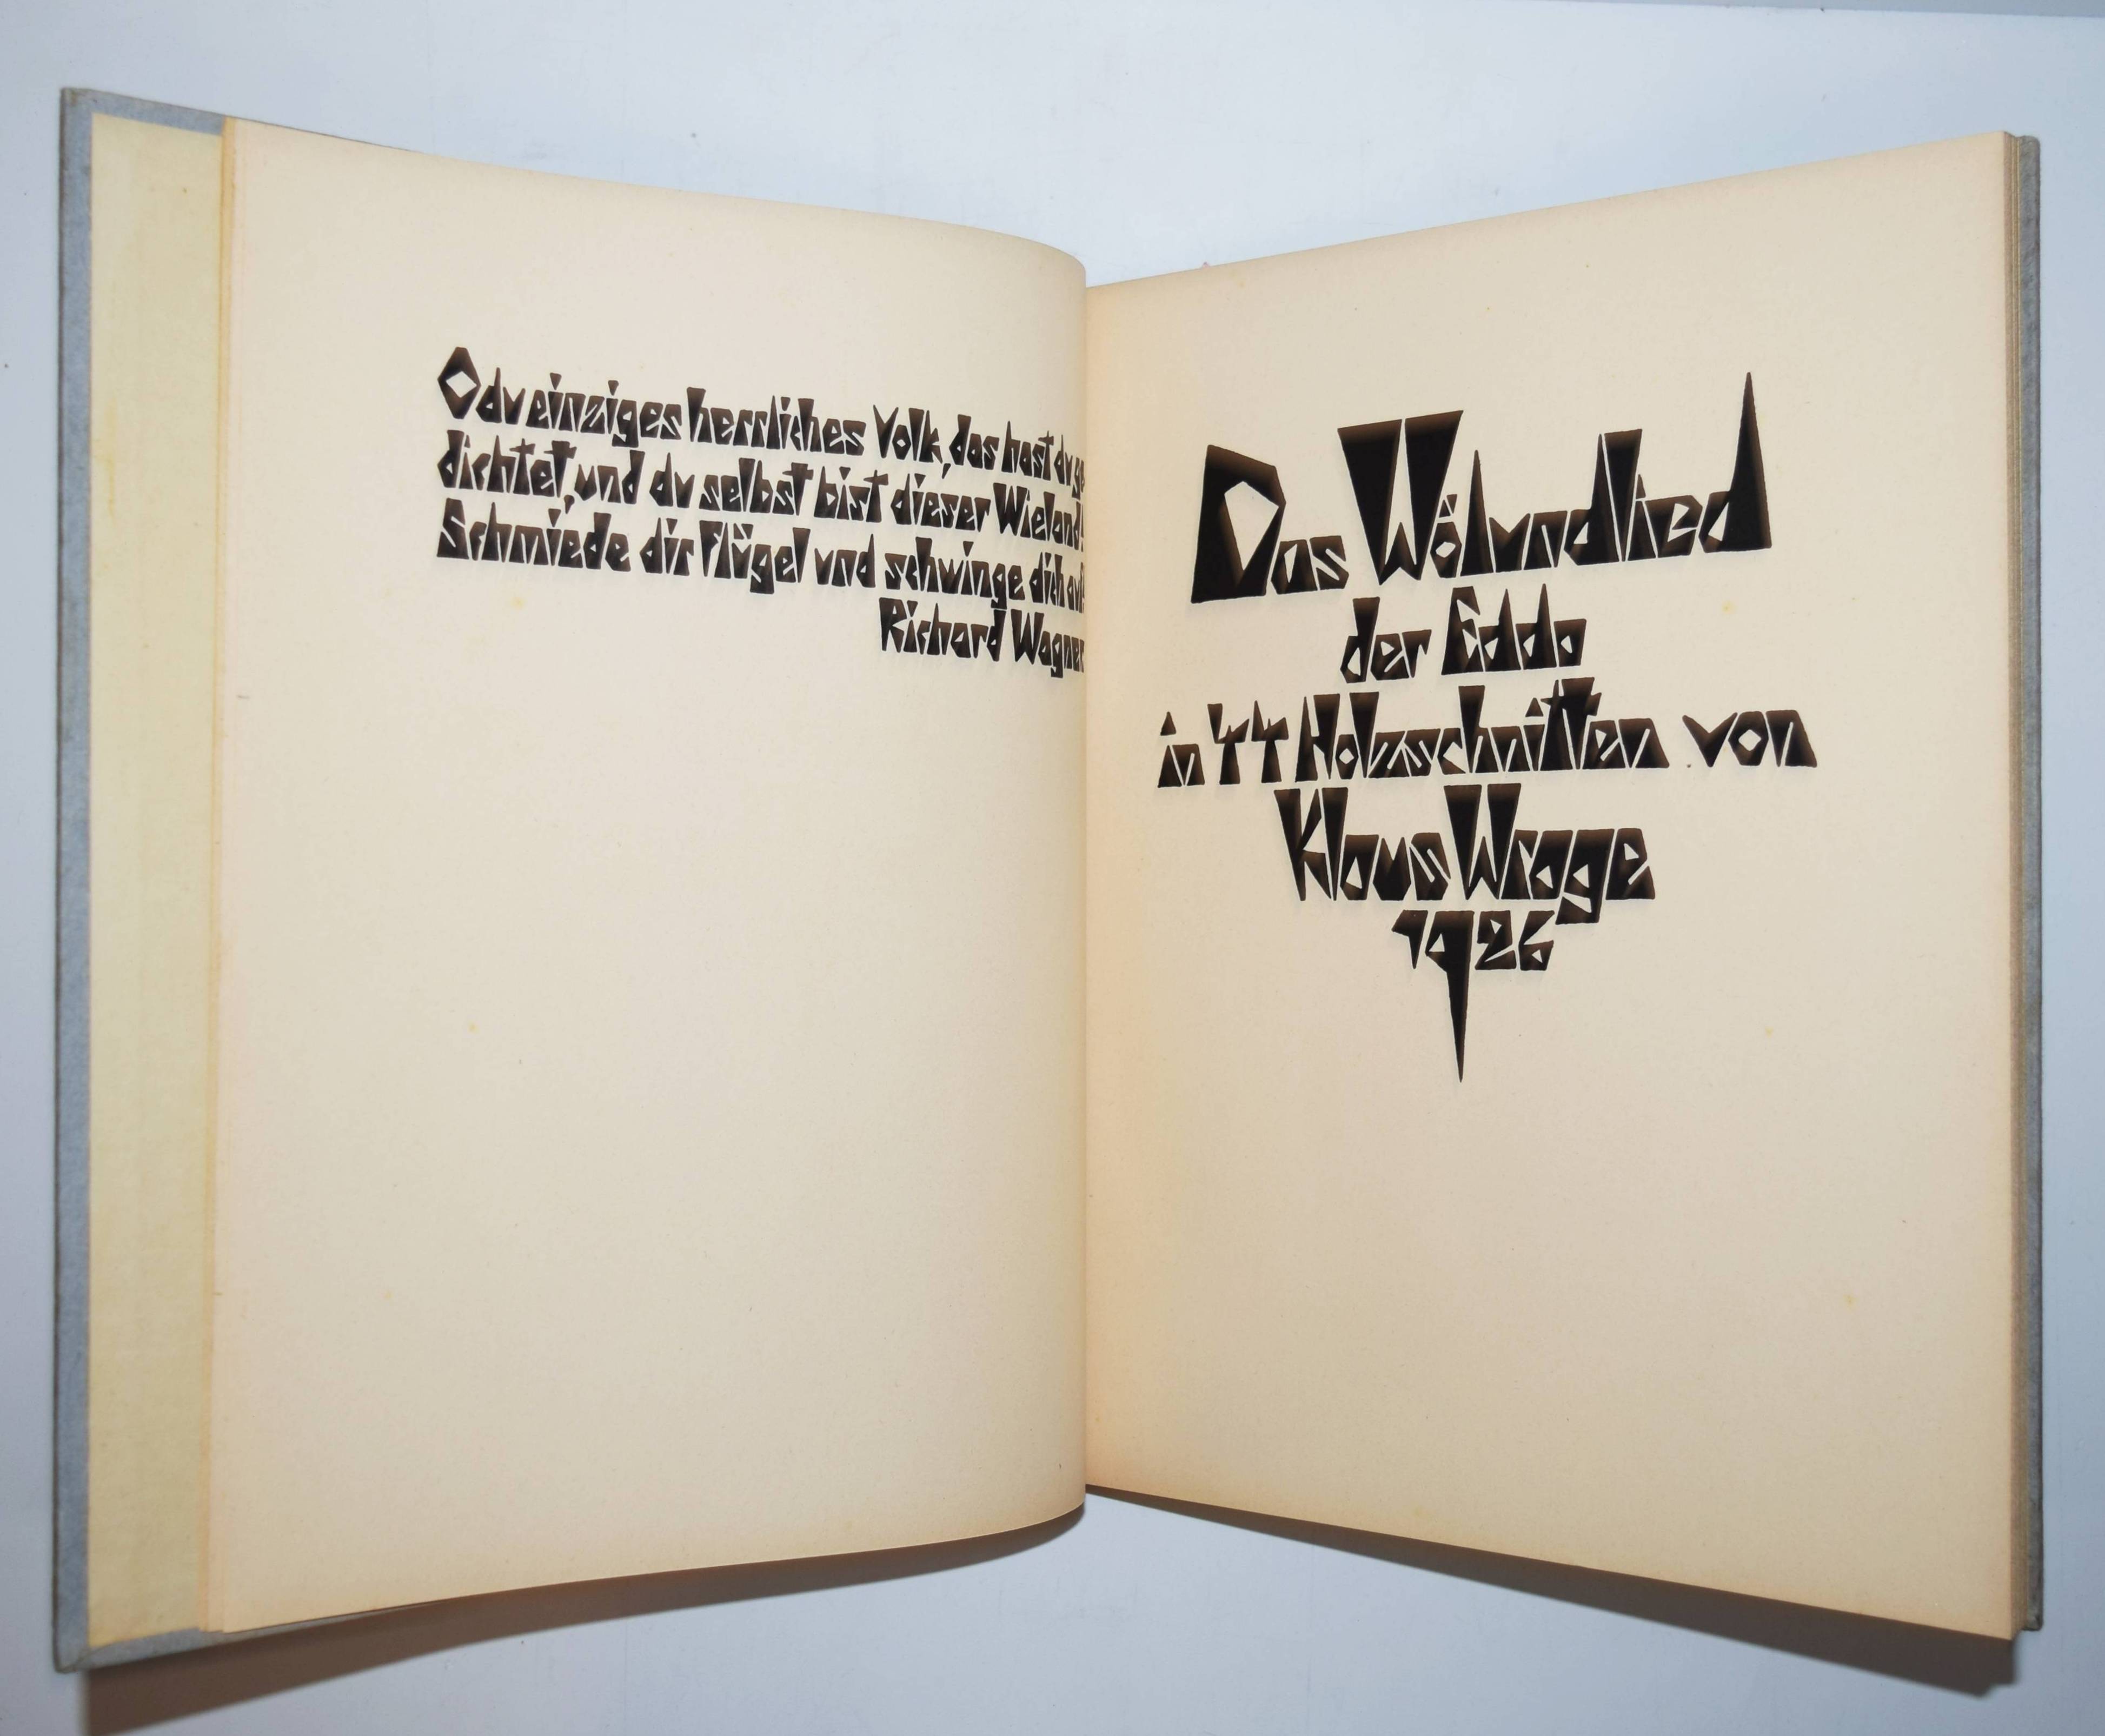 O du einziges herrliches Volk, das hast du ge
dichtet, und du selbst bist dieser Wieland!
Schmiede dir Flügel und schwinge dich auf!
Richard Wagner
Das Wölundlied
der Edda
in 44 Holzschnitten von
Klaus Wrage
1926